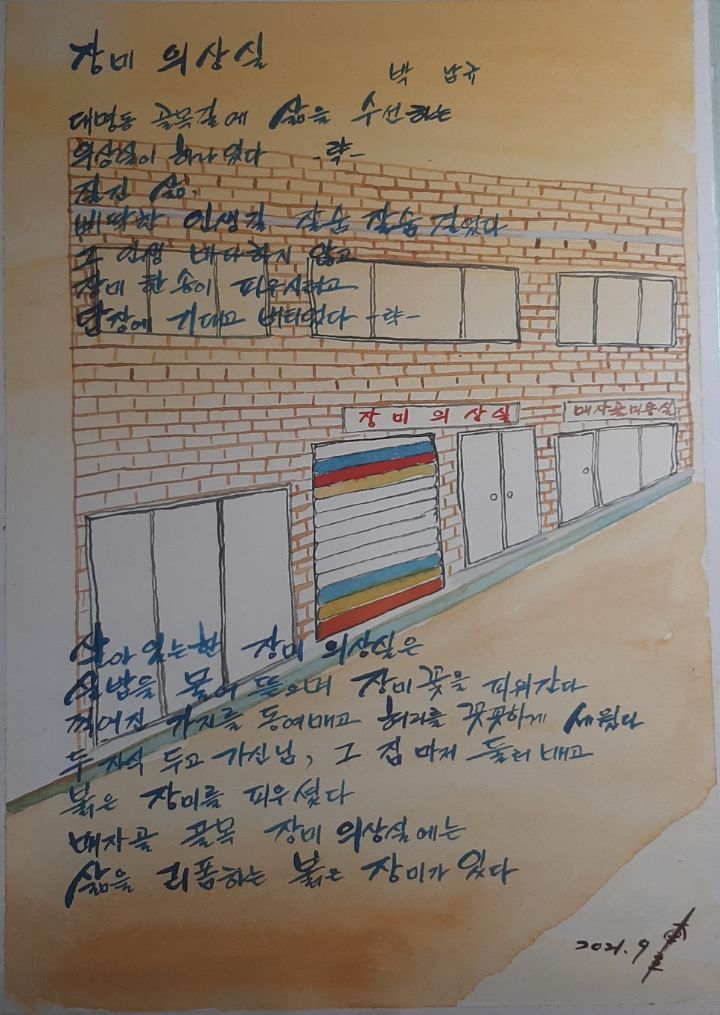 장미 의상실
박 남규
대명동 골목길에 삶을 수선하는
의상실이 하나 있다 -략-
질긴 삶,
삐딱한 인생길 잘순 잘숨 걸었다
그 인생 마다하지 않고
장미 한 송이 피우시려고
담장에 기대고 버티었다 -략-
장미 의상실
매자골미용실
살아 있는한 장미 의상실은
실밥을 물어 뜯으며 장미꽃을 피워간다
꺽어진 가지를 동여매고 허리를 꼿꼿하게 세웠다
두 자식 두고 가신님, 그 짐 마저 둘러 메고
붉은 장미를 피우셨다
매자골 골목 장미 의상실에는
삶을 리폼하는 붉은 장미가 있다
2021. 9